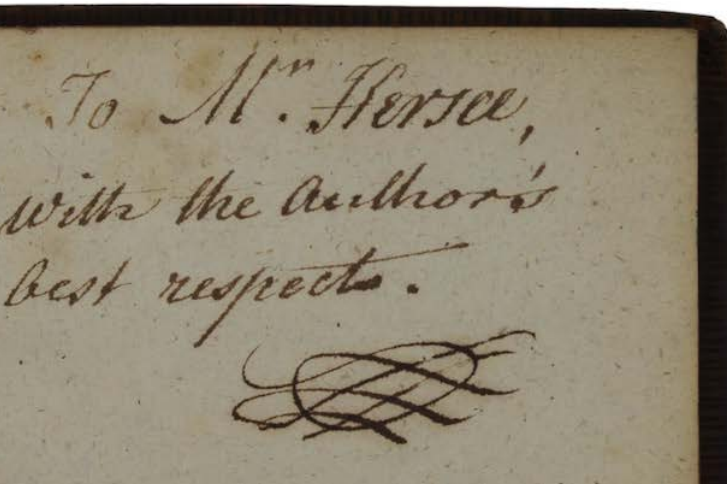 To Mr. Hersee,
with the Author's
best respects.